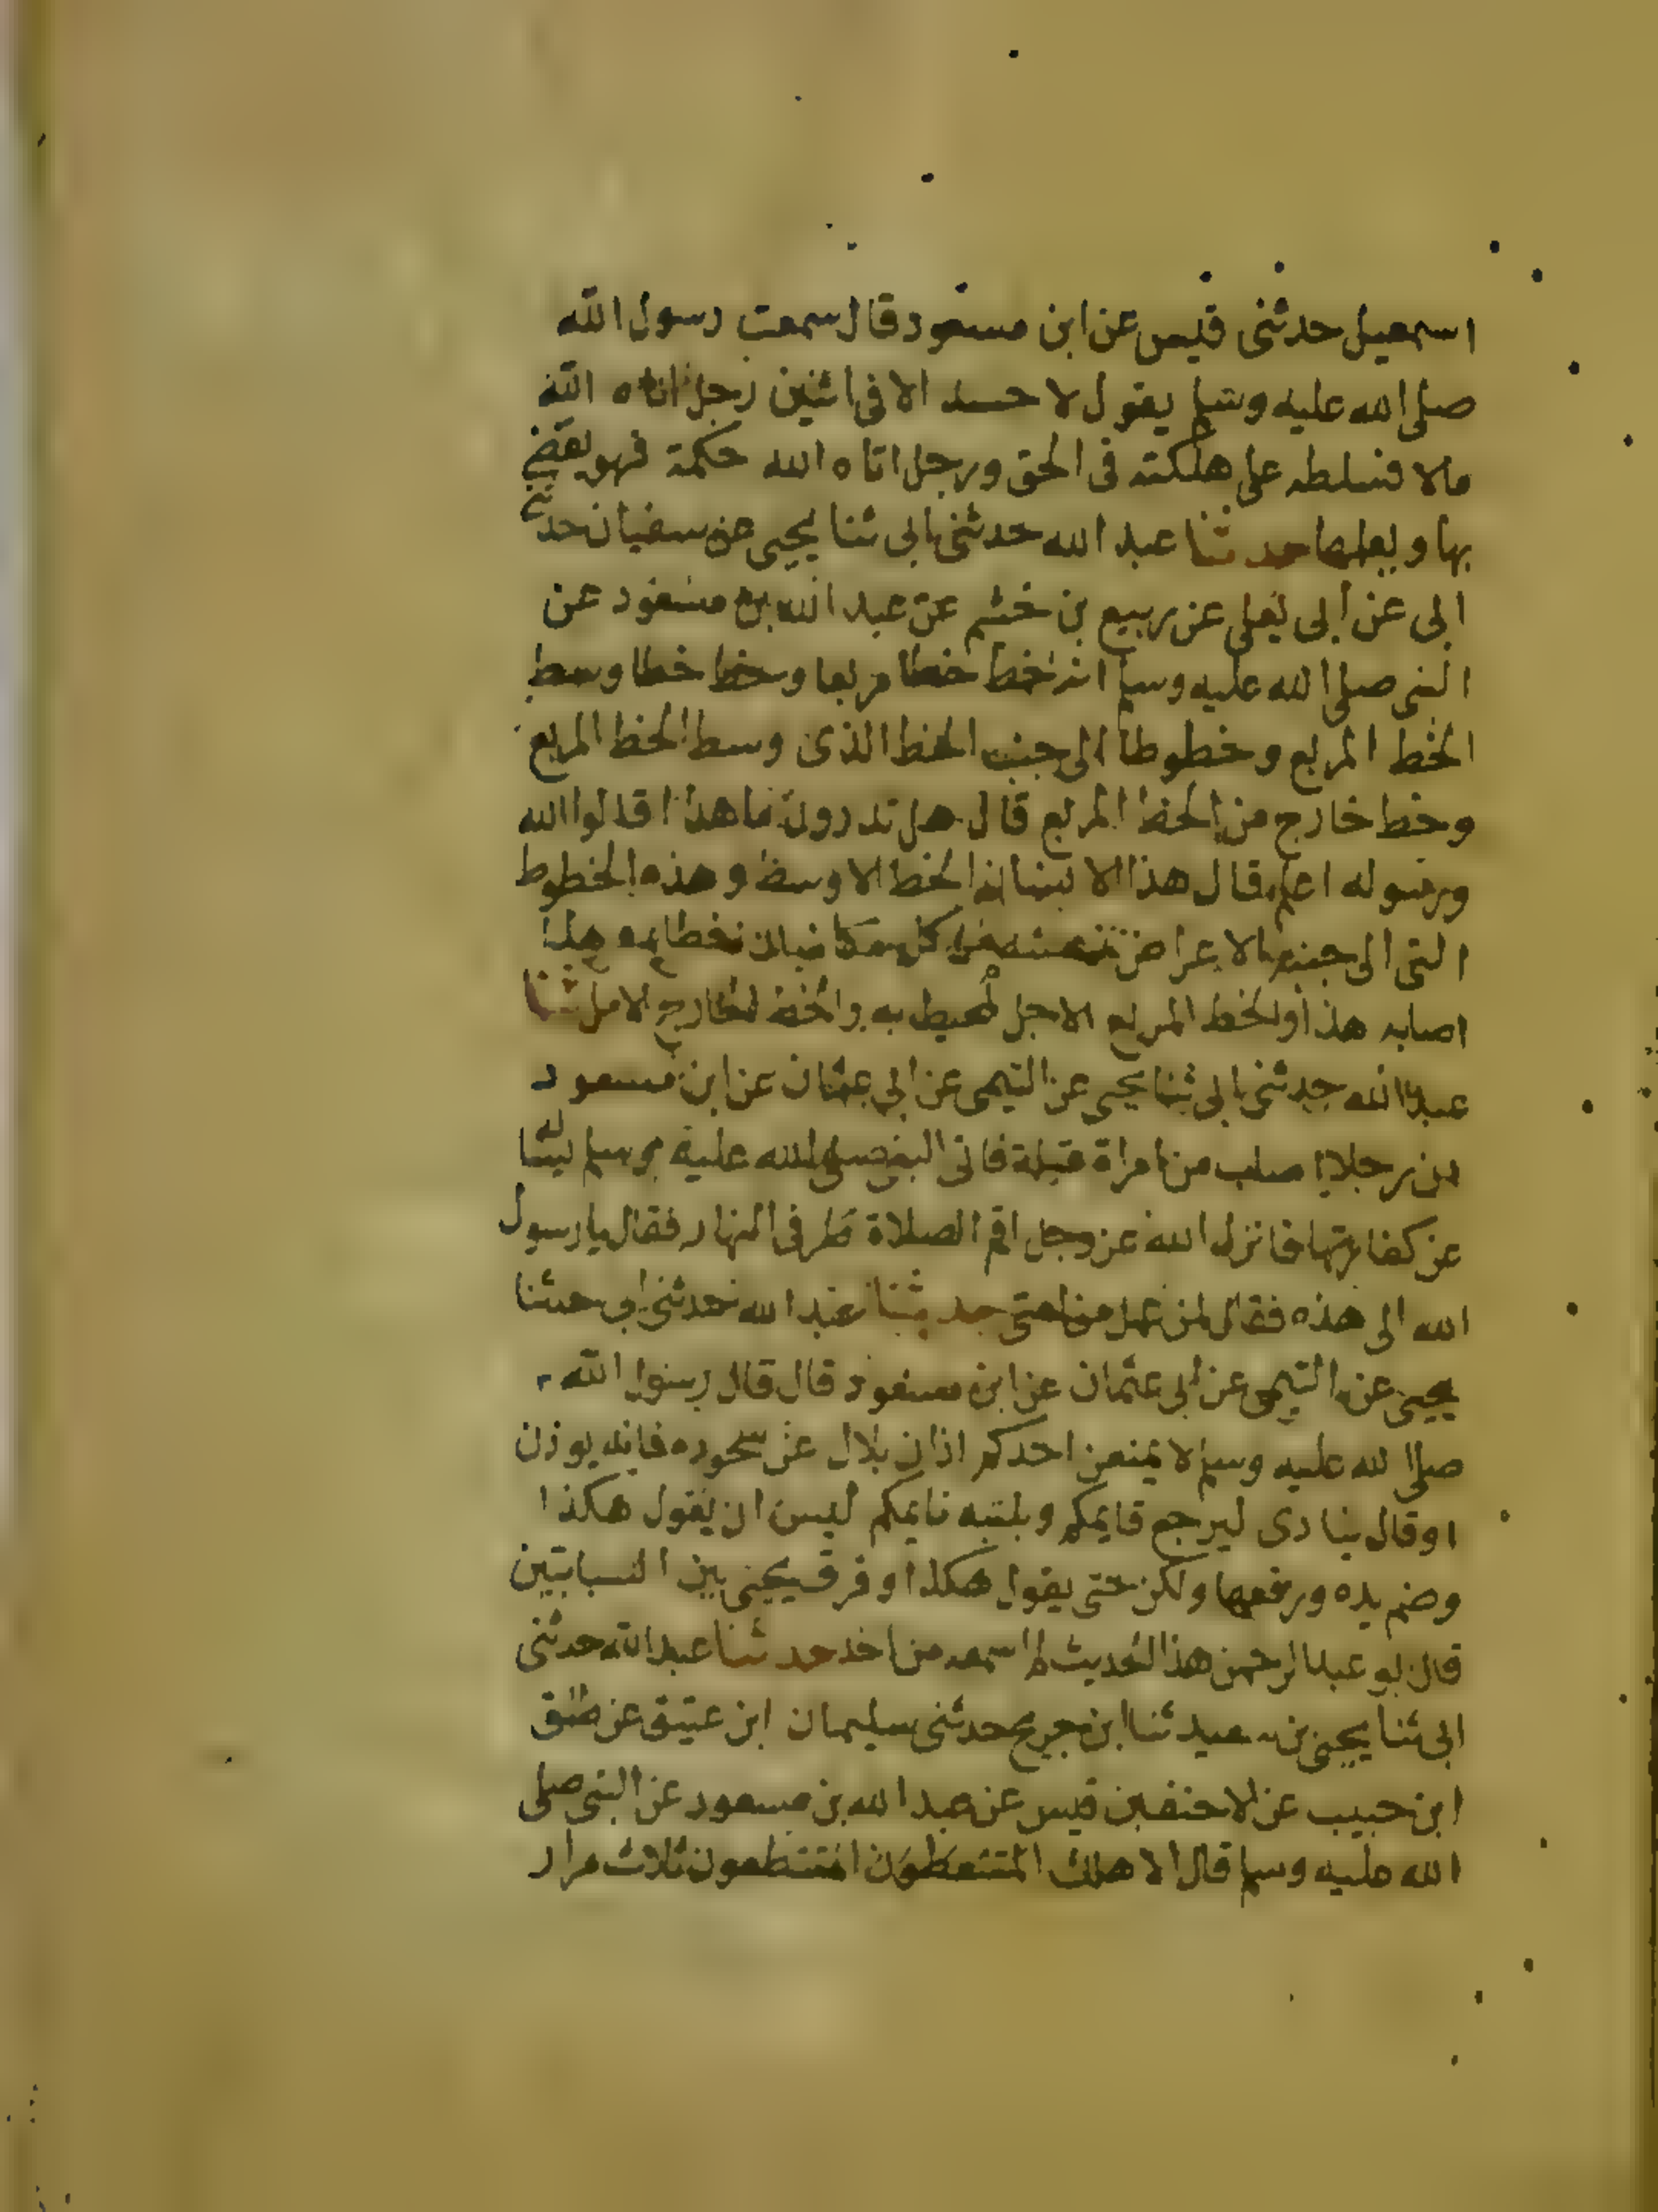 اسمعيل حدثنى قيس عن ابن مسعود قال سمعت رسول الله
صلى الله عليه وسلم يقول لا حسد الا فى اثنين رجل اتاه الله
مالا فسلطه على هلكته فى الحق ورجل اتاه الله حكمة فهو يقضى
بها ويعلمها حدثنا عبد الله حدثنى ابى ثنا يحيى عن سفيان حدثنى
ابى عن ابى يعلى عن ربيع بن خثيم عن عبد الله بن مسعود عن
النبى صلى الله عليه وسلم انه خط خطا مربعا وخط خطا وسط
الخط المربع وخطوطا الى جنب الخط الذى وسط الخط المربع
وخط خارج من الخط المربع قال هل تدرون ما هذا قالوا الله
ورسوله اعلم قال هذا الانسان الخط الاوسط وهذه الخطوط
التى الى جنبه الاعراض تنهشه من كل مكان ان خطاه هذا
اصابه هذا والخط المربع الاجل المحيط به والخط الخارج الامل ثنا
عبد الله حدثنى ابى ثنا يحيى عن التيمى عن ابى عثمان عن ابن مسعود
ان رجلا اصاب من امراة قبلة فاتى النبى صلى الله عليه وسلم يساله
عن كفارتها فانزل الله عز وجل اقم الصلاة طرفى النهار فقال يا رسول
الله الى هذه فقال لمن عمل من امتى حدثنا عبد الله حدثنى ابى حدثنا
يحيى عن التيمى عن ابى عثمان عن ابن مسعود قال قال رسول الله
صلى الله عليه وسلم لا يمنعن احدكم اذان بلال عن سحوره فانه يوذن
او قال ينادى ليرجع قايمكم وينتبه نايمكم ليس ان يقول هكذا
وضم يده ورفعها ولكن حتى يقول هكذا وفرق يحيى بين السبابتين
قال ابو عبد الرحمن هذا الحديث لم اسمعه من احد حدثنا عبد الله حدثنى
ابى ثنا يحيى بن سعيد ثنا ابن جريج حدثنى سليمان ابن عتيق عن طلق
ابن حبيب عن الاحنف بن قيس عن عبد الله بن مسعود عن النبى صلى
الله عليه وسلم قال الا هلك المتنطعون المتنطعون ثلاث مرار